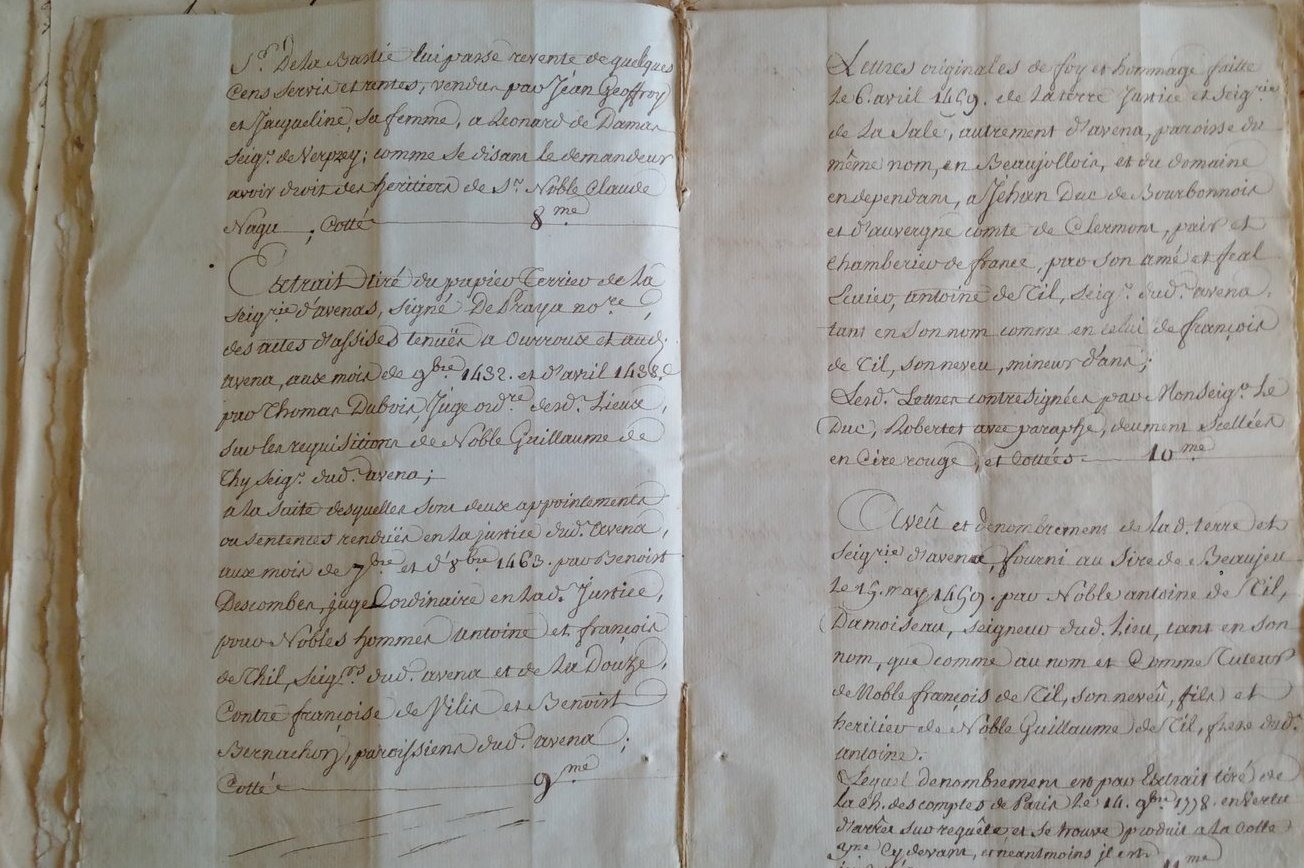 Sr. De la Bastié lui passe revente de quelques
Cens servis et rentes, vendus par Jéan Geoffroy
et Jacqueline, sa femme, a Léonard de Damas
seigr. de Verpzey; comme se disant le demandeur
avoir droit des heritiers de Sr. Noble Claude
Nagu; Cotté 8me
Extrait tiré du papier Terrier de la
seigrie d'avenas, signé De Praya nore,
des actes d'assises tenuës a Ourroux et aud.
avena, aux mois de 9bre 1432. et d'avril 1438.
par Thomas Dubois, Juge ordre desd. Lieux,
sur les requisitions de Noble Guillaume de
Thy seigr. dud. avena;
a la suite desquelles sont deux appointements
ou sentences renduës en la justice dud. avena,
aux mois de 7bre et d'8bre 1463. par Benoist
Descombes, juge ordinaire en lad. Justice,
pour Nobles hommes Antoine et françois
de Thil, seigrs. dud. avena et de La Douze,
Contre françoise de Vilis et Benoist
Bernachon, paroissiens dud. avena;
Cotté 9me
Lettres originales de foy et hommage faitte
le 6. avril 1459. de la terre Justice et Seigrie
de La Sale, autrement d'avena, paroisse du
même nom, en Beaujollois, et du domaine
en dependant, a Jéhan Duc de Bourbonnois
et d'auvergne comte de Clermont, pair et
Chamberier de france, par son amé et feal
Ecuier, antoine de Til, seigr. dud. avena.
tant en son nom comme en celui de françois
de Til, son neveu, mineur d'ans;
Lesd. Lettres contresignées par Monseigr. Le
Duc, Robertet avec paraphe, deument scellées
en Cire rouge, et Cottées 10me
Aveû et denombrement de lad. terre et
seigrie d'avena, fourni au sire de Beaujeu
le 15. may 1459. par Noble antoine de Til,
Damoiseau, seigneur dud. Lieu, tant en son
nom, que comme au nom et Comme Tuteur
de Noble françois de Til, son neveû, fils et
heritier de Noble Guillaume de Til, frere dud.
antoine.
Lequel denombrement est par Extrait tiré de
la ch. des comptes de Paris le 14. 9bre 1778. en vertu
d'arrêt sur requête et se trouve produit a la Cotte
Cy devant, et neantmoins il est